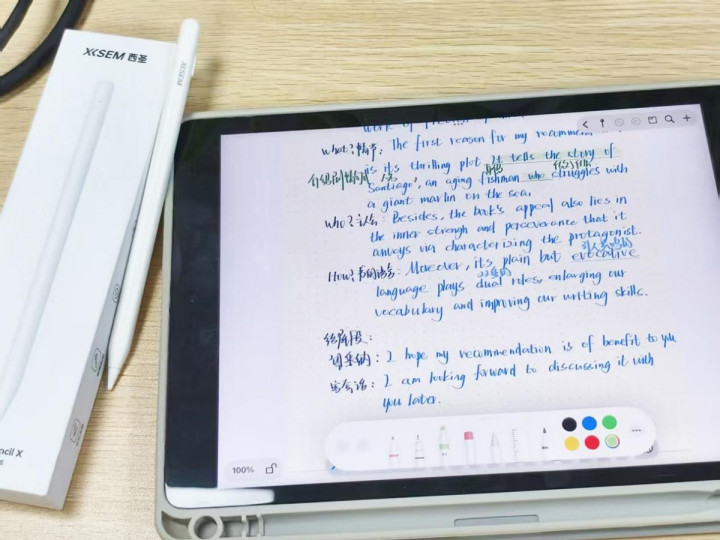 XSEM 西圣
XSEM
work of
What?情节: The first reason for my recommen
is its thrilling plot. It tells the story of
介绍剧情简
Santiago, an aging fishman who struggles with
a giant marlin on the sea.
Who?主会: Besides, the book's appeal also lies in
the inner strengh and perceverance that it
conveys via characterizing the protagonist.
How?: Moreover, its plain but evocative
双重的
language plays dual roles, enlarging our
vocabulary and improving our writing skills.
结尾段:
望采纳: I hope my recommendation is of benefit to you
写会话: I am looking forward to discussing it with
you later.
100%
ncil X